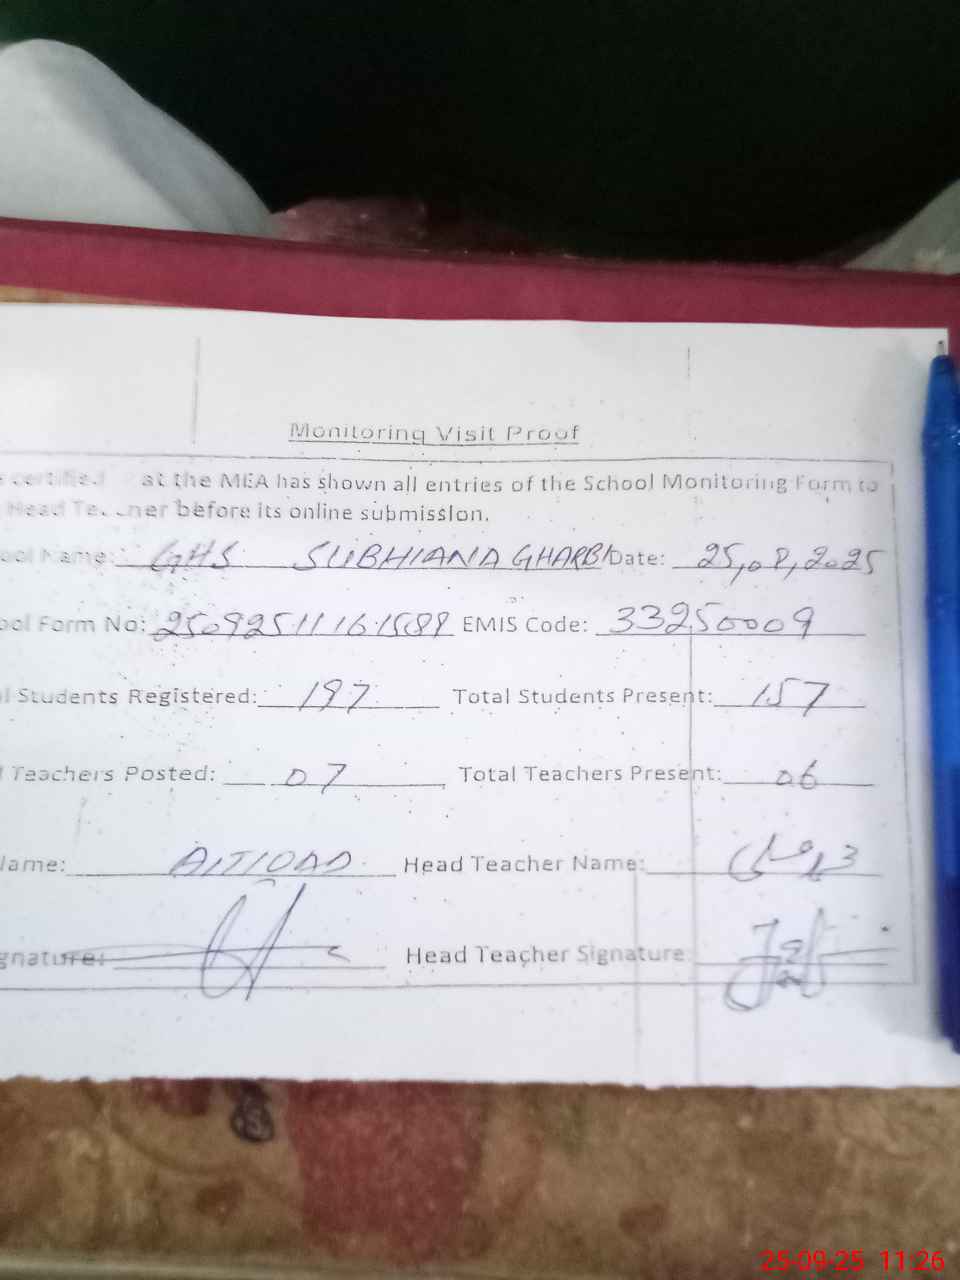 Monitoring Visit Proof
certified at the MEA has shown all entries of the School Monitoring Form to
Head before its online submission.
ool Name: GHS SUBHIANA GHARBI Date: 25,08,2025
ool Form No: EMIS Code: 33250009
l Students Registered: 197 Total Students Present: 157
Teachers Posted: 07 Total Teachers Present: 06
lame: Head Teacher Name:
gnature: Head Teacher Signature:
25-09-25 11:26